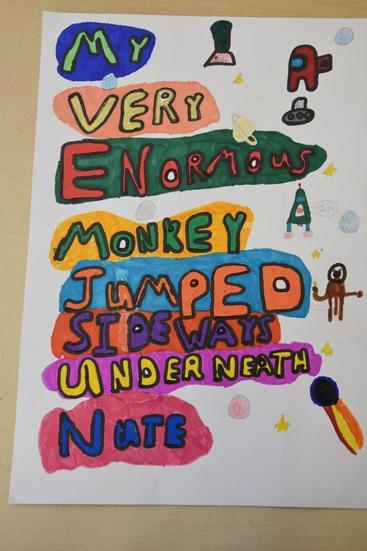 My
VERY
ENORMOUS
MONKEY
JUMPED
SIDEWAYS
UNDERNEATH
NATE